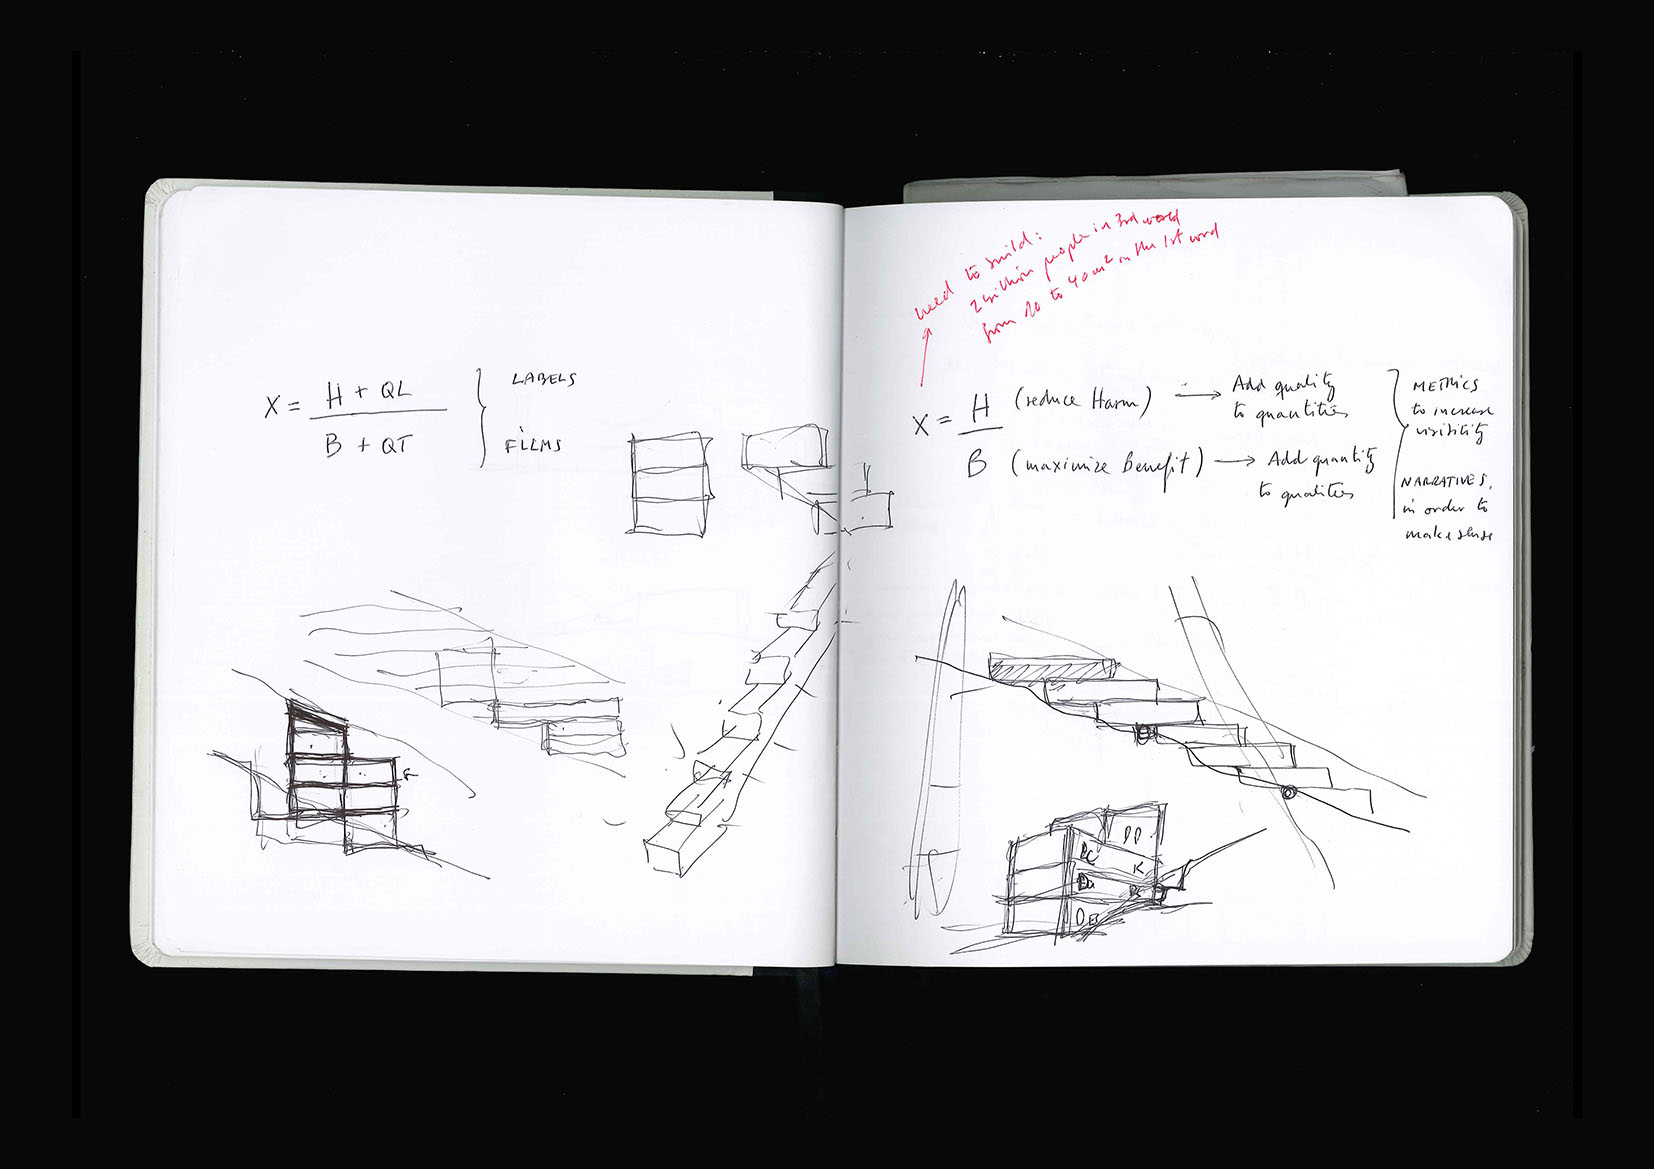 X = H + QL
B + QT
LABELS
FILMS
need to build:
2 billion people in 3rd world
from 20 to 40 m² in the 1st word
X = H (reduce Harm) → Add quality
to quantities
B (maximize Benefit) → Add quantity
to qualities
METRICS
to increase
visibility
NARRATIVES,
in order to
make sense
DD
K